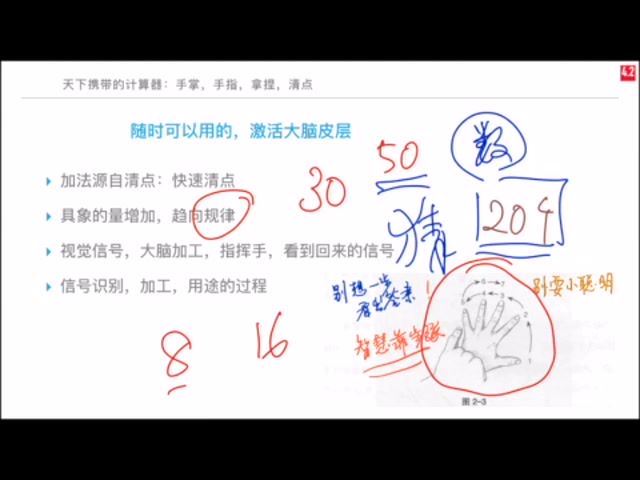 42
天下携带的计算器：手掌，手指，拿捏，清点
随时可以用的，激活大脑皮层
加法源自清点：快速清点
具象的量增加，趋向规律
视觉信号，大脑加工，指挥手，看到回来的信号
信号识别，加工，用途的过程
30
50
数
猜
204
别想一步
别耍小聪明
智慧
8
16
图 2-3